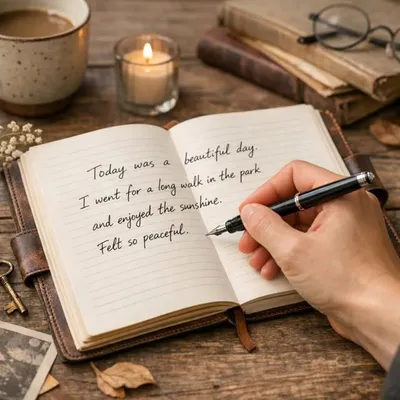 Today was a beautiful day.
I went for a long walk in the park
and enjoyed the sunshine.
Felt so peaceful.